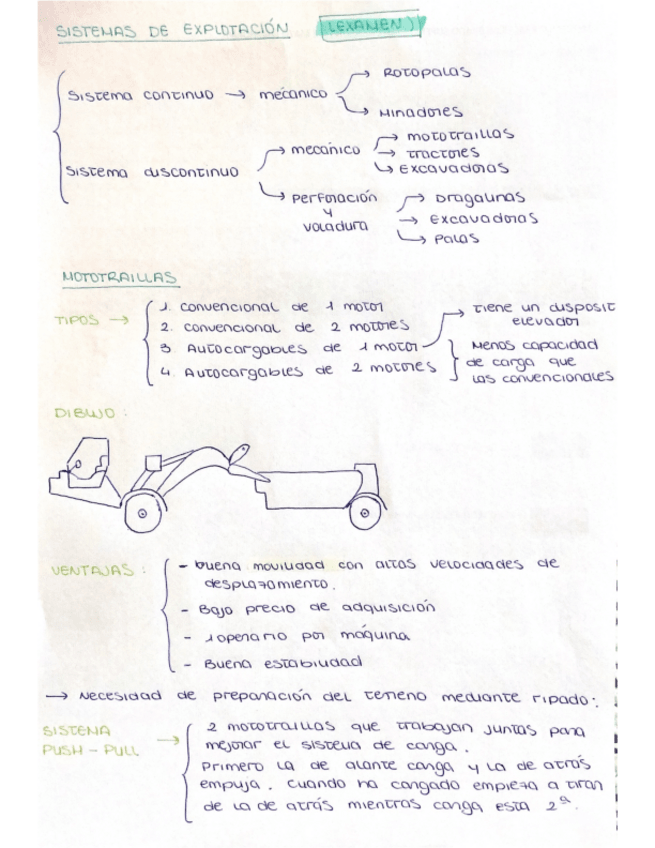 SISTEMAS DE EXPLOTACIÓN (EXAMEN)
Sistema continuo → mecánico
→ Rotopalas
→ Minadores
Sistema discontinuo
→ mecánico
→ mototraillas
→ Tractores
→ Excavadoras
→ Perforación
y
voladura
→ Dragalinas
→ Excavadoras
→ Palas
MOTOTRAILLAS
TIPOS →
1. convencional de 1 motor
2. convencional de 2 motores
3. Autocargables de 1 motor
4. Autocargables de 2 motores
→ Tiene un disposit
elevador
Menos capacidad
de carga que
las convencionales
DIBUJO :
VENTAJAS :
- buena movilidad con altas velocidades de
desplazamiento.
- Bajo precio de adquisición
- 1 operario por máquina
- Buena estabilidad
→ Necesidad de preparación del terreno mediante ripado.
SISTEMA
PUSH - PULL →
2 mototraillas que trabajan juntas para
mejorar el sistema de carga.
Primero la de alante carga y la de atrás
empuja. Cuando ha cargado empieza a tirar
de la de atrás mientras carga esta 2ª.